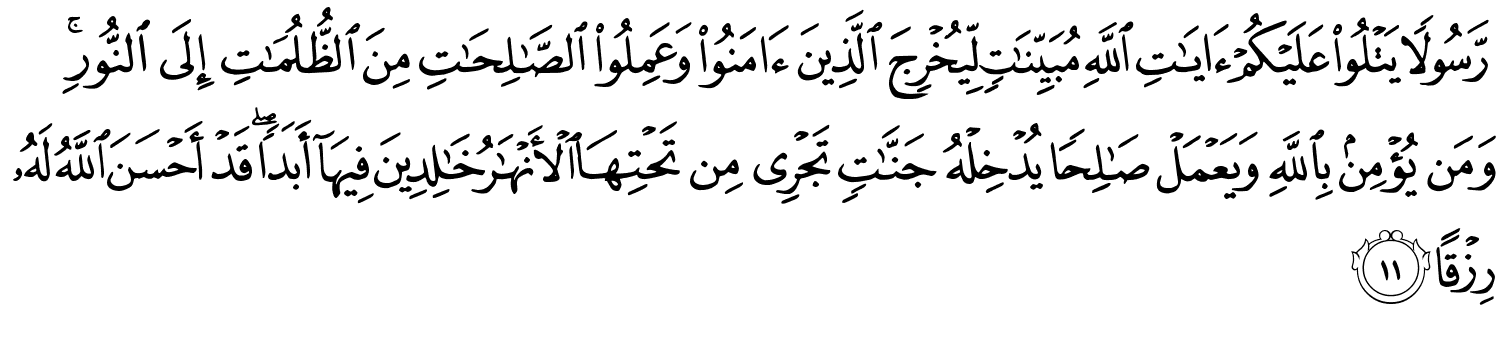 رَّسُولًا يَتْلُوا۟ عَلَيْكُمْ ءَايَـٰتِ ٱللَّهِ مُبَيِّنَـٰتٍ لِّيُخْرِجَ ٱلَّذِينَ ءَامَنُوا۟ وَعَمِلُوا۟ ٱلصَّـٰلِحَـٰتِ مِنَ ٱلظُّلُمَـٰتِ إِلَى ٱلنُّورِ ۚ
وَمَن يُؤْمِنۢ بِٱللَّهِ وَيَعْمَلْ صَـٰلِحًا يُدْخِلْهُ جَنَّـٰتٍ تَجْرِى مِن تَحْتِهَا ٱلْأَنْهَـٰرُ خَـٰلِدِينَ فِيهَآ أَبَدًا ۖ قَدْ أَحْسَنَ ٱللَّهُ لَهُۥ
رِزْقًا ١١